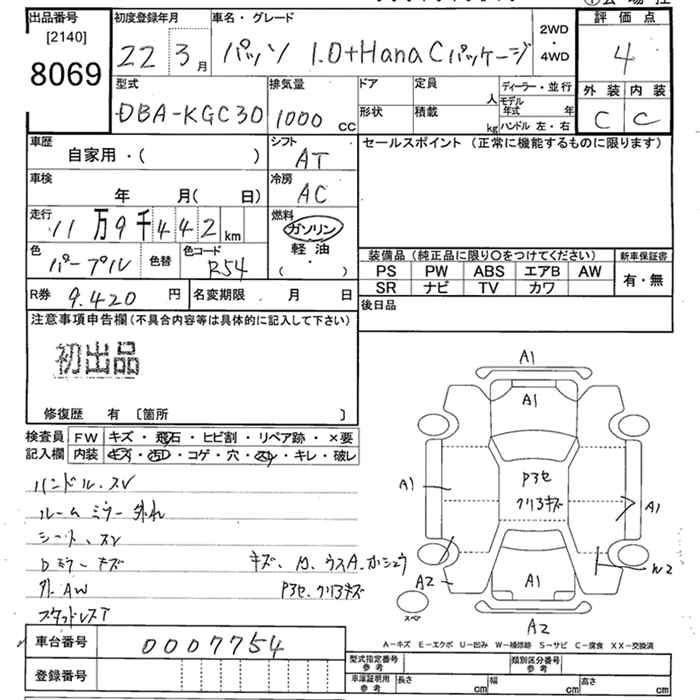 出品番号
[2140]
8069
初度登録年月
22 3月
車名・グレード
パッソ 1.0+Hana Cパッケージ
2WD
・
4WD
評価点
4
外装 内装
C C
型式
DBA-KGC30
排気量
1000 cc
ドア
形状
定員
人
積載
kg
ディーラー・並行
モデル
年式 年
ハンドル 左・右
車歴
自家用・( )
シフト
AT
セールスポイント (正常に機能するものに限ります)
車検
年 月( 日)
冷房
AC
走行
11万9千442km
燃料
ガソリン
軽油
( ・ )
色
パープル
色替
色コード
R54
装備品 (純正品に限り○をつけてください)
新車保証書
PS PW ABS エアB AW
SR ナビ TV カワ
有・無
R券 9.420円
名変期限 月 日
後日品
注意事項申告欄(不具合内容等は具体的に記入して下さい)
初出品
修復歴 有 〔箇所 〕
検査員
記入欄
FW キズ・飛石・ヒビ割・リペア跡・×要
内装 キズ・汚レ・コゲ・穴・スレ・キレ・破レ
ハンドル.スレ
ルームミラー外れ
シート、スレ
Dミラーキズ
外.AW
スタッドレスT
P3セ、クリアキズ
A1
A1
A1
P3セ
クリアキズ
A1
A2
W2
A1
スペア
A2
車台番号 0007754
登録番号
A－キズ E－エクボ U－凹み W－補修跡 S－サビ C－腐食 XX－交換済
型式指定番号
参考
類別区分番号
参考
車庫証明用
参考
長さ cm 幅 cm 高さ cm